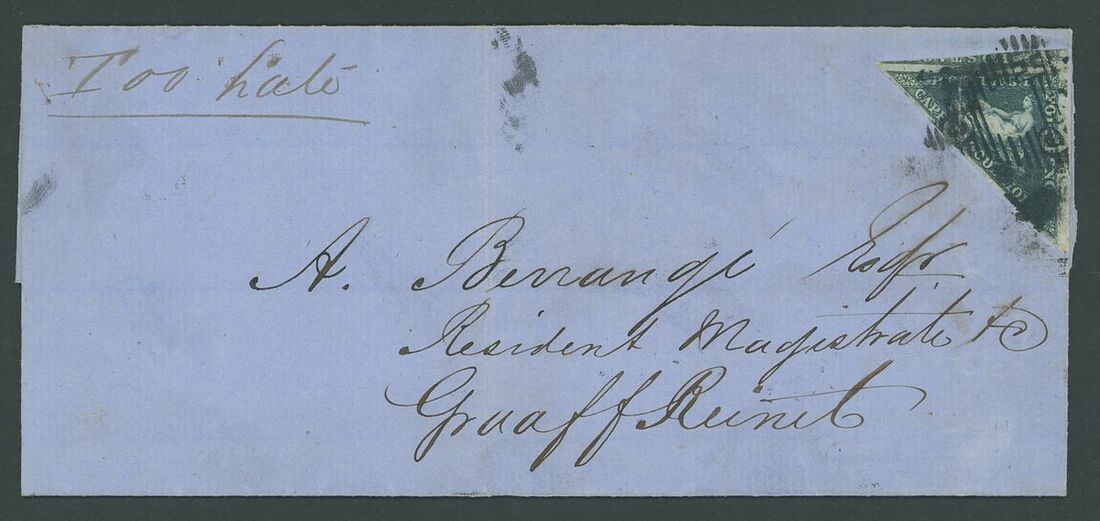 Too Late
A. Berrangé Esqr
Resident Magistrate &c
Graaff Reinet
CAPE